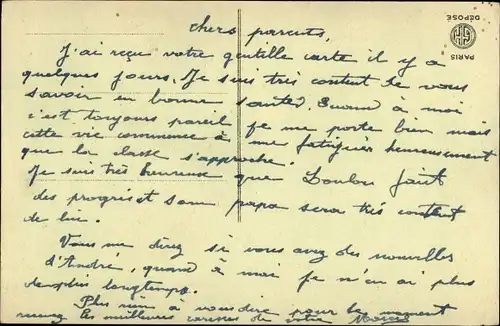 chers parents,
J'ai reçu votre gentille carte il y a
quelques jours. Je suis très content de vous
savoir en bonne santée. Quand à moi
c'est toujours pareil je me porte bien mais
cette vie commence à me fatiguer heureusement
que la classe s'approche.
Je suis très heureux que Loulou fait
des progrès et son papa sera très content
de lui.
Vous me direz si vous avez des nouvelles
d'André, quand à moi je n'en ai plus
depuis longtemps.
Plus rien à vous dire pour le moment
recevez les meilleures caresses de votre
PARIS
DÉPOSÉ